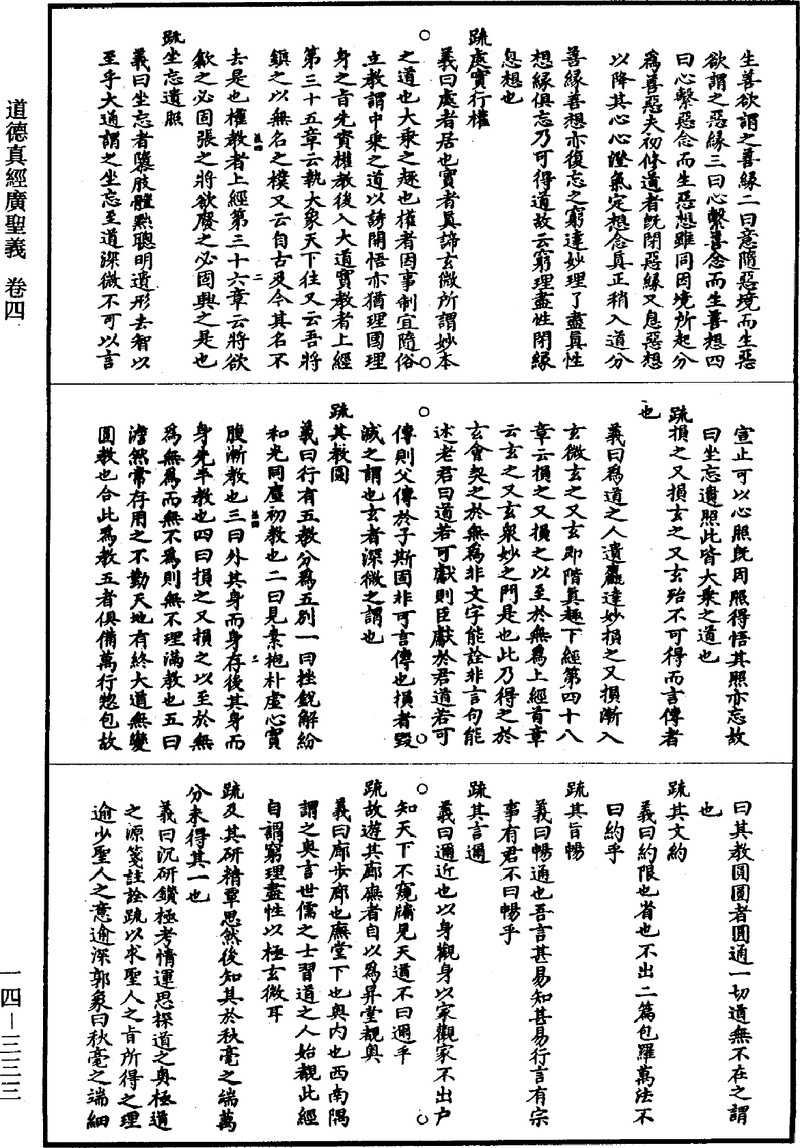 道德真經廣聖義　卷四
生善欲謂之善緣二曰意隨惡境而生惡
欲謂之惡緣三曰心繫善念而生善想四
曰心繫惡念而生惡想雖同因境所起分
為善惡夫初修道者既閉惡緣又息惡想
以降其心心澄氣定想念真正稍入道分
善緣善想亦復忘之窮達妙理了盡真性
想緣俱忘乃可得道故云窮理盡性閉緣
息想也
疏處實行權
義曰處者居也實者真諦玄微所謂妙本
之道也大乘之趣也權者因事制宜隨俗
立教謂中乘之道以誘開悟亦猶理國理
身之旨先資權教後入大道實教者上經
第三十五章云執大象天下往又云吾將
鎮之以無名之樸又云自古及今其名不
去是也權教者上經第三十六章云將欲
歙之必固張之將欲廢之必固興之是也
疏坐忘遺照
義曰坐忘者隳肢體黜聰明遺形去智以
至乎大通謂之坐忘至道深微不可以言
宣止可以心照既因照得悟其照亦忘故
曰坐忘遺照此皆大乘之道也
疏損之又損玄之又玄殆不可得而言傳者
也
義曰為道之人遺麤達妙損之又損漸入
玄微玄之又玄即階真趣下經第四十八
章云損之又損之以至於無為上經首章
云玄之又玄衆妙之門是也此乃得之於
玄會契之於無為非文字能詮非言句能
述老君曰道若可獻則臣獻於君道若可
傳則父傳於子斯固非可言傳也損者毀
減之謂也玄者深微之謂也
疏其教圓
義曰行有五教分為五別一曰挫銳解紛
和光同塵初教也二曰見素抱朴虛心實
腹漸教也三曰外其身而身存後其身而
身先半教也四曰損之又損之以至於無
為無為而無不為則無不理滿教也五曰
澹然常存用之不勤天地有終大道無變
圓教也合此為教五者俱備萬行惣包故
曰其教圓圓者圓通一切道無不在之謂
也
疏其文約
義曰約限也省也不出二篇包羅萬法不
曰約乎
疏其旨暢
義曰暢通也吾言甚易知甚易行言有宗
事有君不曰暢乎
疏其言邇
義曰邇近也以身觀身以家觀家不出户
知天下不窺牖見天道不曰邇乎
疏故遊其廊廡者自以為昇堂覩奧
義曰廊步廊也廡堂下也奥内也西南隅
謂之奥言世儒之士習道之人始覩此經
自謂窮理盡性以極玄微耳
疏及其研精覃思然後知其於秋毫之端萬
分未得其一也
義曰沉研鑽極考情運思探道之奥極道
之源箋註詮疏以求聖人之旨所得之理
逾少聖人之意逾深郭象曰秋毫之端細
一四－三三三